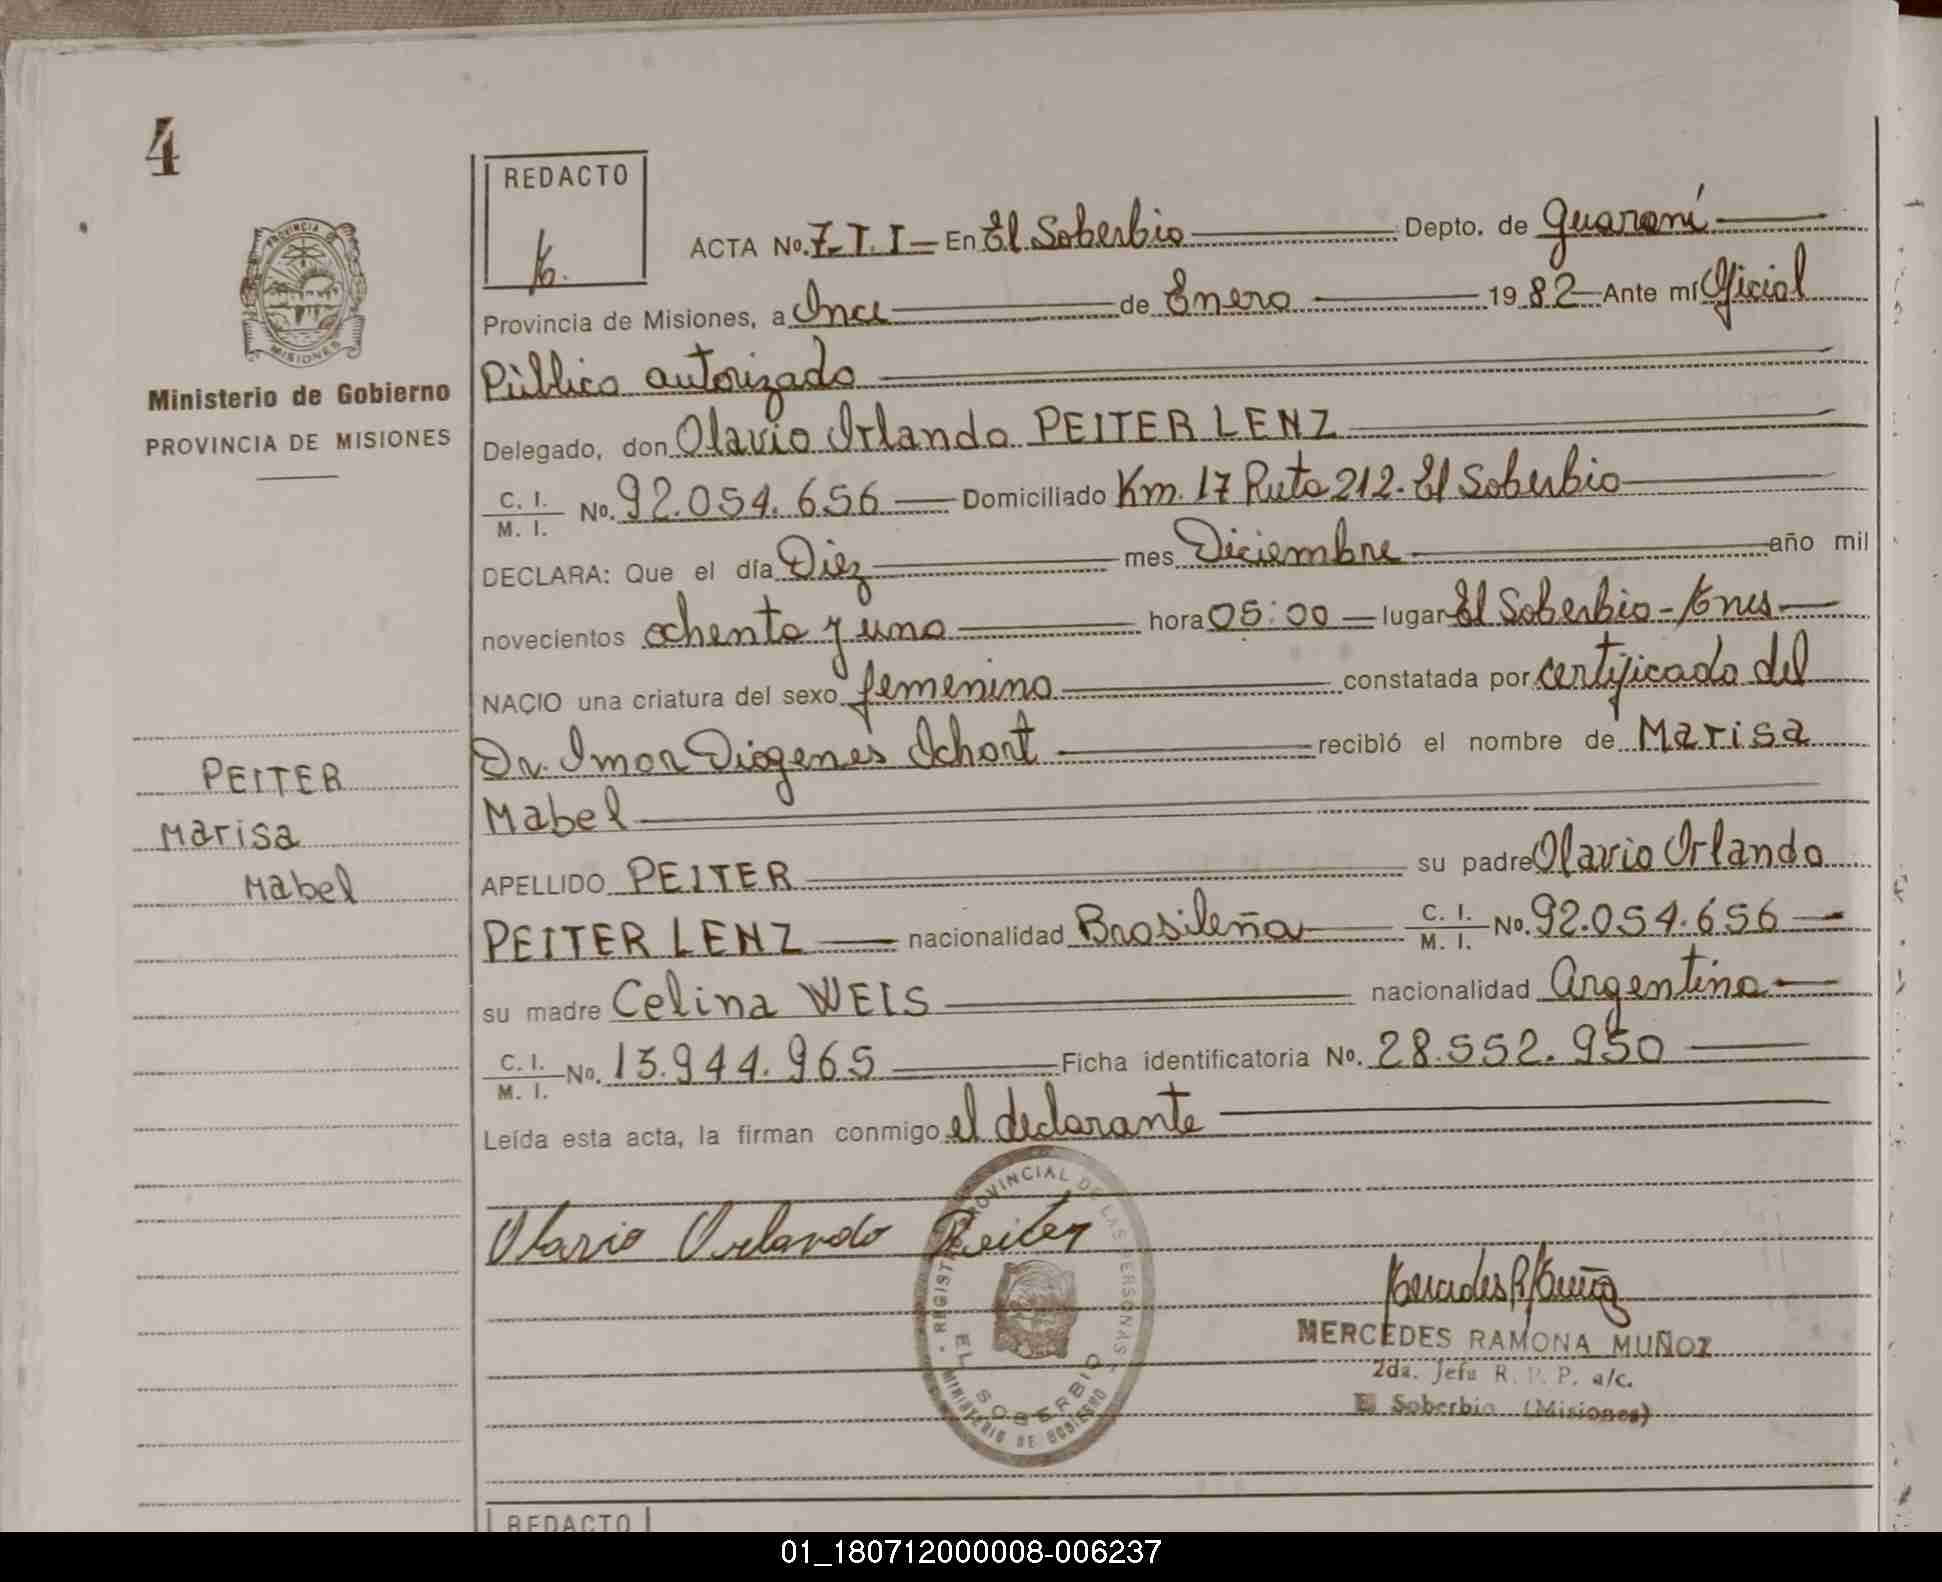 4
REDACTO
PROVINCIA DE
MISIONES
Ministerio de Gobierno
PROVINCIA DE MISIONES
ACTA No. 7-T.I- En El Soberbio Depto. de Guaraní
Provincia de Misiones, a Once de Enero 1982 Ante mí Oficial
Público autorizado
Delegado, don Olavio Orlando PEITER LENZ
C. I. / M. I. No. 92.054.656 Domiciliado Km. 17 Ruta 212. El Soberbio
DECLARA: Que el día Diez mes Diciembre año mil
novecientos ochenta y uno hora 05:00 lugar El Soberbio-
NACIO una criatura del sexo femenino constatada por certificado del
Dr. Diogenes recibió el nombre de Marisa
Mabel
PEITER
Marisa
Mabel
APELLIDO PEITER su padre Olavio Orlando
PEITER LENZ nacionalidad Brasileña C. I. / M. I. No. 92.054.656
su madre Celina WEIS nacionalidad Argentina
C. I. / M. I. No. 13.944.965 Ficha identificatoria No. 28.552.950
Leída esta acta, la firman conmigo el declarante
Olavio Orlando Peiter
REGISTRO PROVINCIAL DE LAS PERSONAS
EL SOBERBIO
MINISTERIO DE GOBIERNO
Mercedes R Muñoz
MERCEDES RAMONA MUÑOZ
2da. Jefa R. P. P. a/c.
El Soberbio (Misiones)
REDACTO
01_180712000008-006237